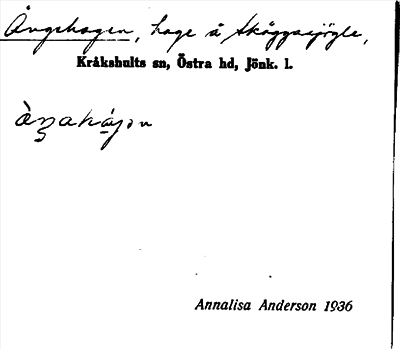 Ångehagen, hage å Skäggaijögle,
Kråkshults sn, Östra hd, Jönk. l.
Annalisa Anderson 1936